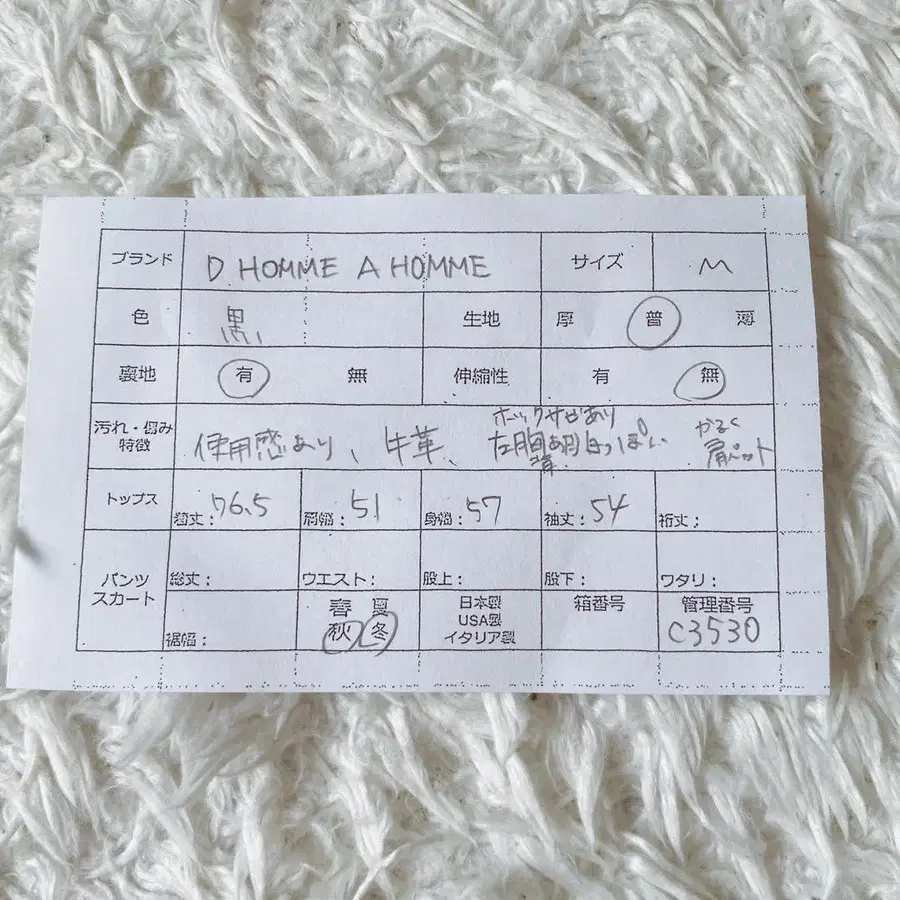 ブランド D HOMME A HOMME サイズ M
色 黒 生地 厚 普 薄
裏地 有 無 伸縮性 有 無
汚れ・傷み
特徴
ホックサビあり
使用感あり、牛革、左胸 白っぽい
かるく
肩パット
トップス 着丈:76.5 肩幅:51 身幅:57 袖丈:54 裄丈:
パンツ
スカート
総丈: ウエスト: 股上: 股下: ワタリ:
裾幅:
春 夏
秋 冬
日本製
USA製
イタリア製
箱番号
管理番号
C3530